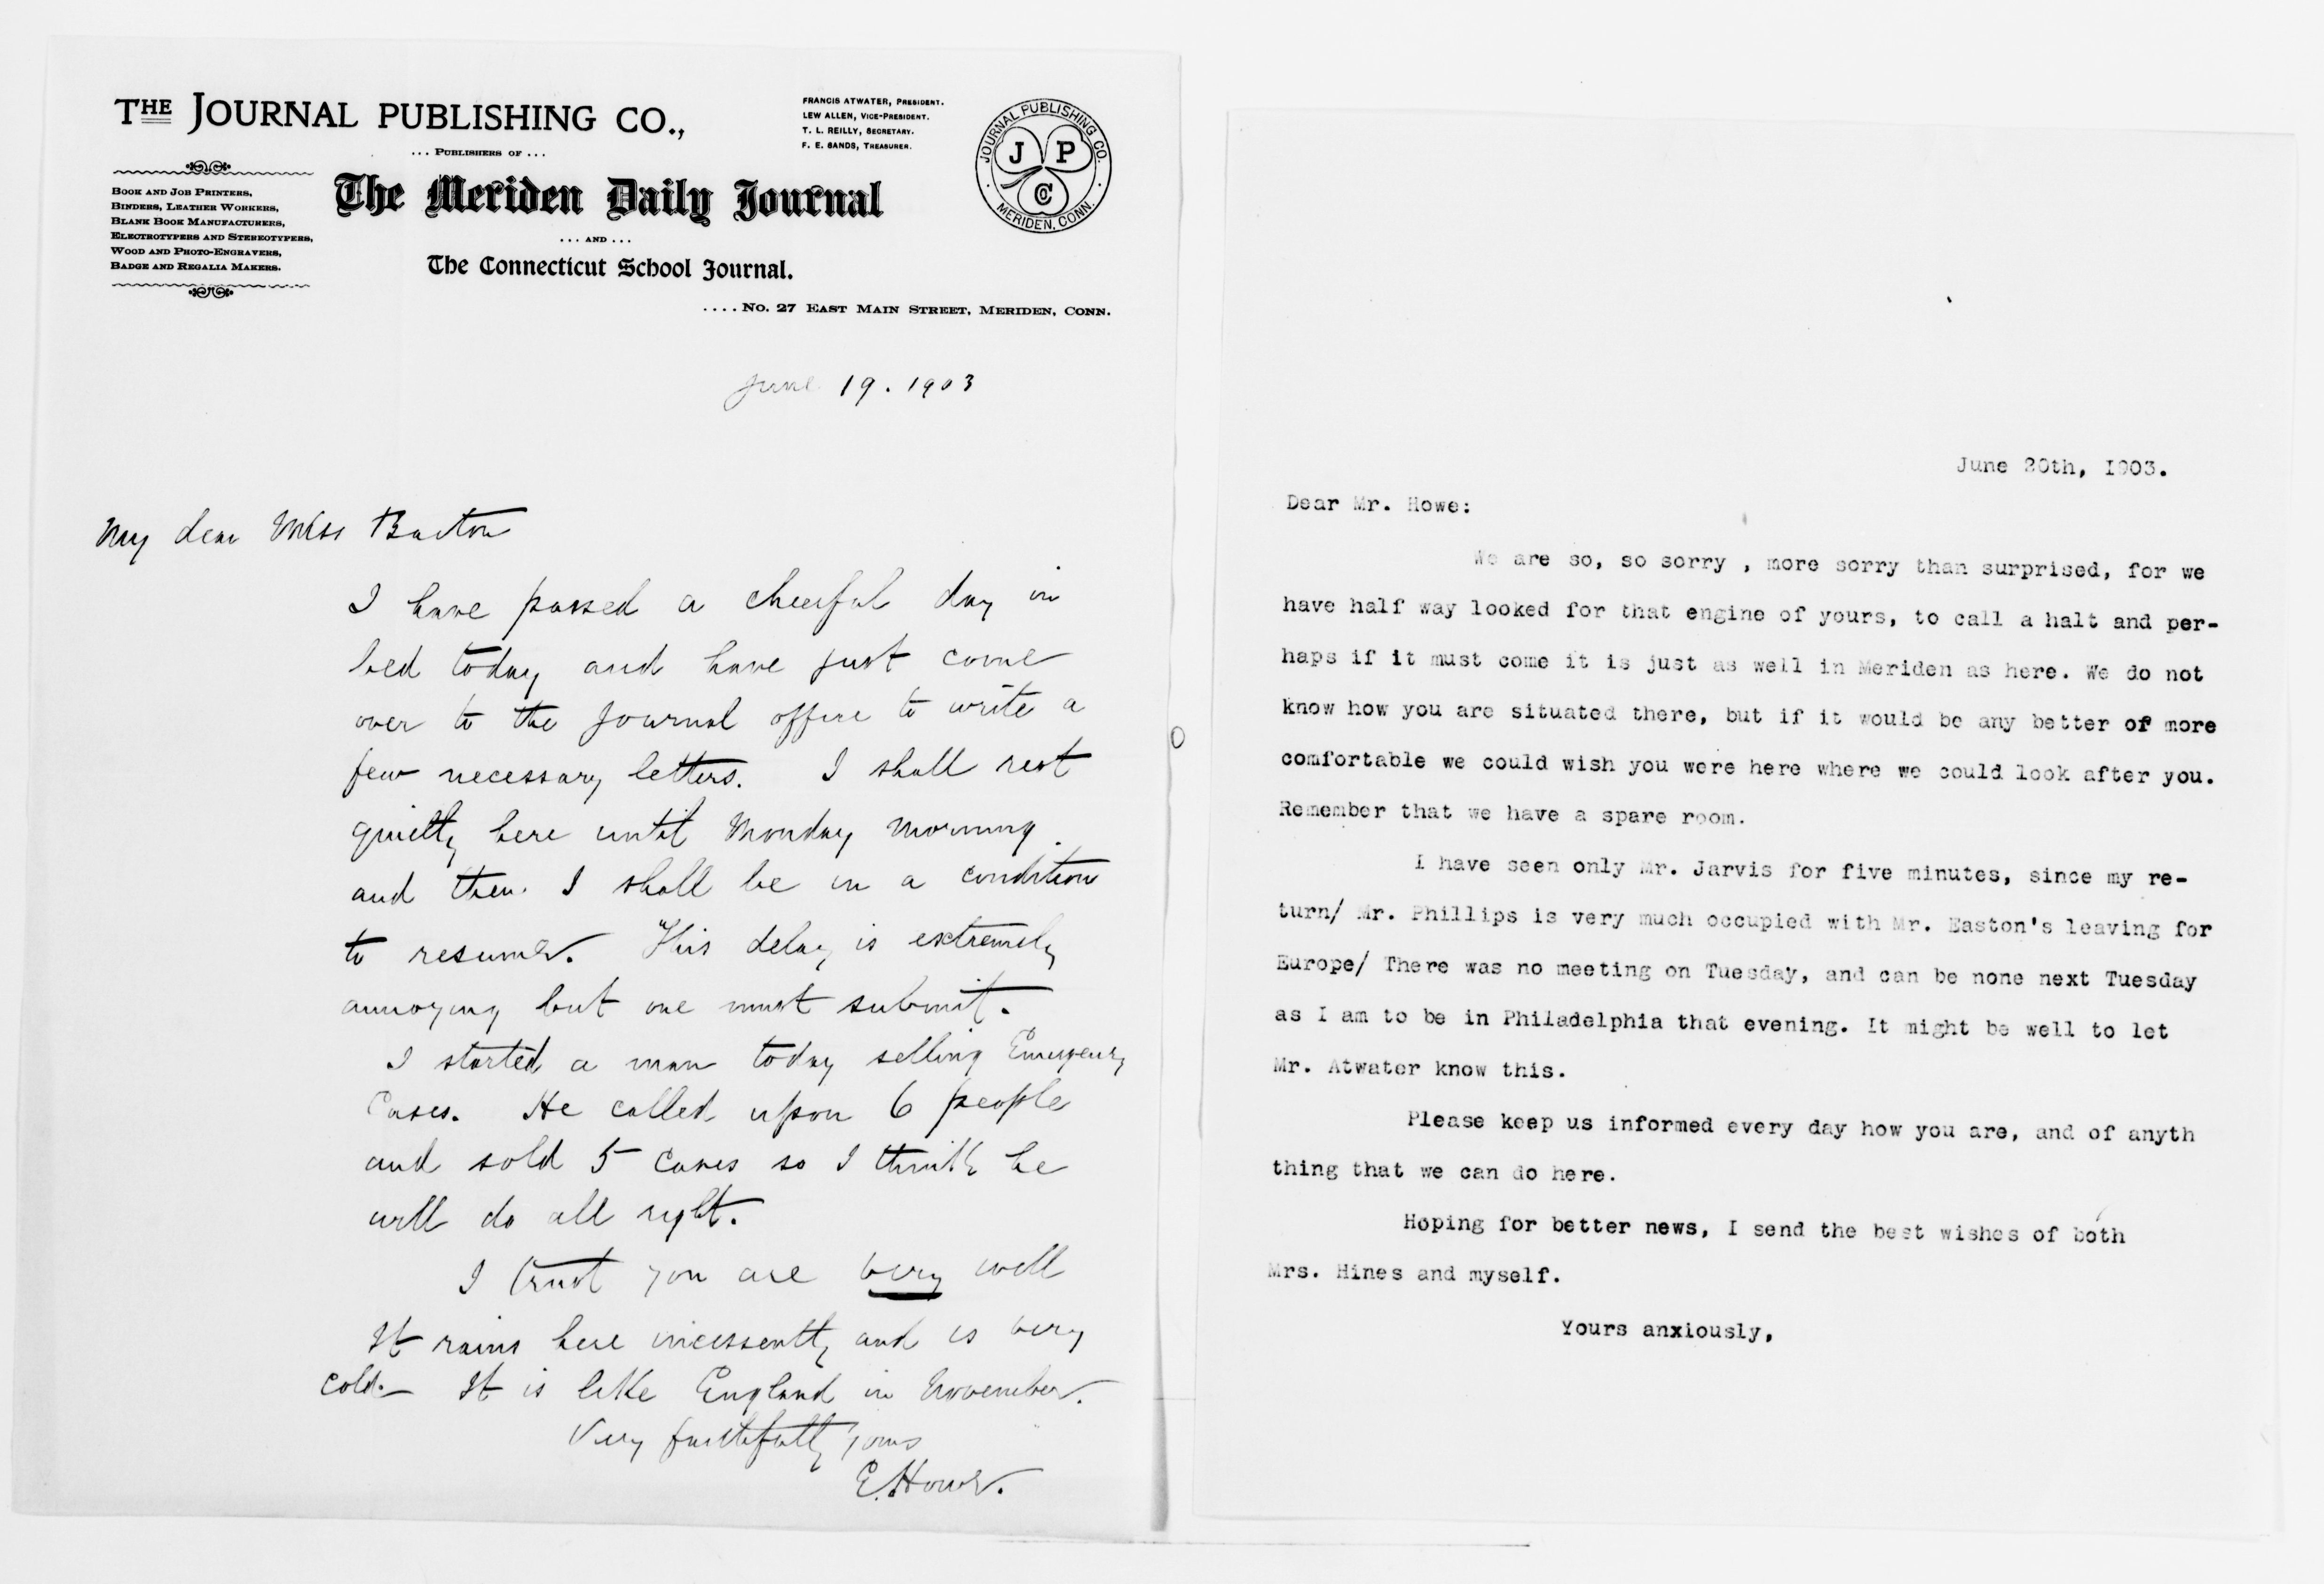 THE JOURNAL PUBLISHING CO.,
... PUBLISHERS OF ...
The Meriden Daily Journal
... AND ...
The Connecticut School Journal.
.... NO. 27 EAST MAIN STREET, MERIDEN, CONN.
BOOK AND JOB PRINTERS,
BINDERS, LEATHER WORKERS,
BLANK BOOK MANUFACTURERS,
ELECTROTYPERS AND STEREOTYPERS,
WOOD AND PHOTO-ENGRAVERS,
BADGE AND REGALIA MAKERS.
FRANCIS ATWATER, PRESIDENT.
LEW ALLEN, VICE-PRESIDENT.
T. L. REILLY, SECRETARY.
F. E. SANDS, TREASURER.
JOURNAL PUBLISHING CO.
J P
CO
MERIDEN, CONN.
June 19. 1903
My dear Miss Barton
I have passed a cheerful day in
bed today and have just come
over to the Journal office to write a
few necessary letters. I shall rest
quietly here until Monday morning
and then I shall be in a condition
to resume. This delay is extremely
annoying but one must submit.
I started a man today selling Emergency
Cases. He called upon 6 people
and sold 5 cases so I think he
will do all right.
I trust you are very well
It rains here incessantly and is very
cold. It is like England in November.
Very faithfully yours
E. Howe.
June 20th, I903.
Dear Mr. Howe:
We are so, so sorry , more sorry than surprised, for we
have half way looked for that engine of yours, to call a halt and per-
haps if it must come it is just as well in Meriden as here. We do not
know how you are situated there, but if it would be any better of more
comfortable we could wish you were here where we could look after you.
Remember that we have a spare room.
I have seen only Mr. Jarvis for five minutes, since my re-
turn/ Mr. Phillips is very much occupied with Mr. Easton's leaving for
Europe/ There was no meeting on Tuesday, and can be none next Tuesday
as I am to be in Philadelphia that evening. It might be well to let
Mr. Atwater know this.
Please keep us informed every day how you are, and of anyth
thing that we can do here.
Hoping for better news, I send the best wishes of both
Mrs. Hines and myself.
Yours anxiously,